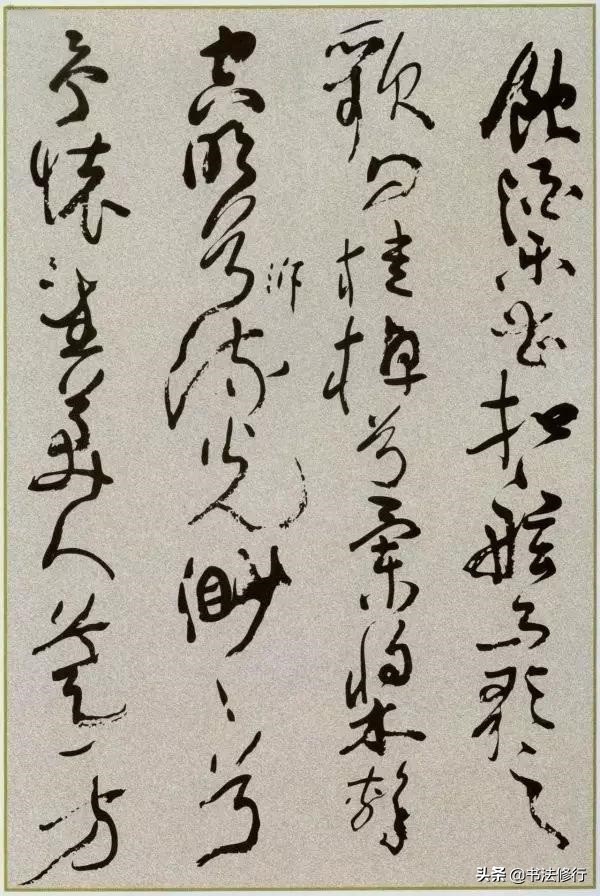 飲酒樂甚扣舷而歌之
歌曰桂棹兮蘭槳擊
空明兮泝流光渺〻兮
予懷望美人兮天一方
头条 @书法修行